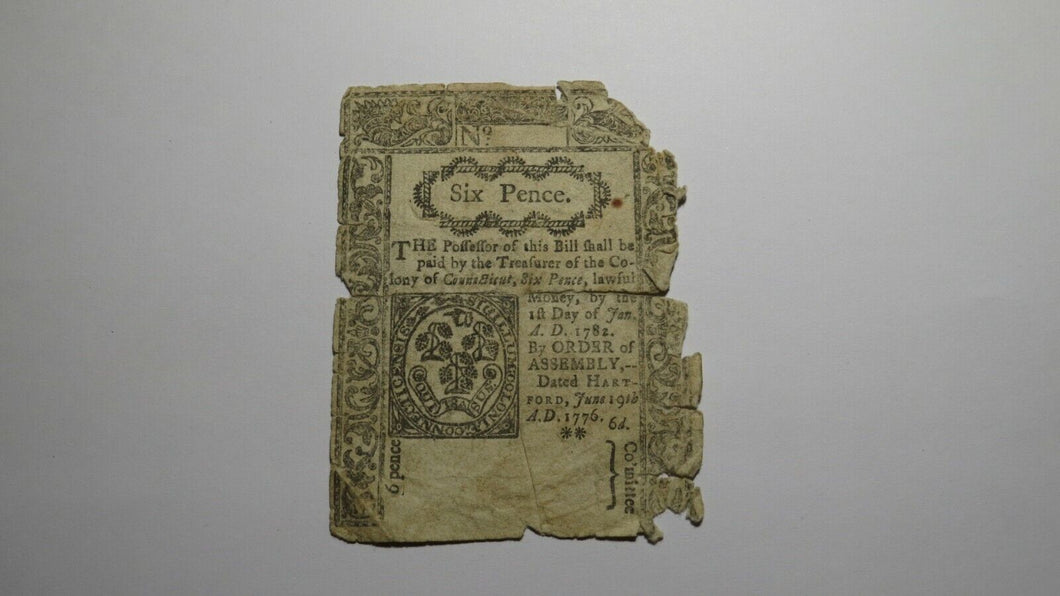 No.
Six Pence.
THE Poſſeſſor of this Bill ſhall be
paid by the Treaſurer of the Co-
lony of Connecticut, Six Pence, lawful
Money, by the
1ſt Day of Jan.
A. D. 1782.
By ORDER of
ASSEMBLY,--
Dated HART-
FORD, June 19th
A.D. 1776.
6d.
**
SIGILLUM COLONIÆ CONNECTICENSIS
6 pence
Co'mittee